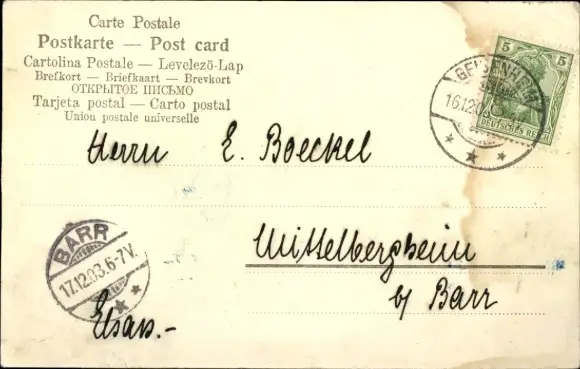 Carte Postale
Postkarte — Post card
Cartolina Postale — Levelezö-Lap
Brefkort — Briefkaart — Brevkort
ОТКРЫТОЕ ПИСЬМО
Tarjeta postal — Carto postal
Union postale universelle
5 5
DEUTSCHES REICH
GEISENHEIM
16.12.03
Herrn E. Boeckel
Mittelbergheim
b/ Barr
BARR
17.12.03.6-7V.
Elsass.-